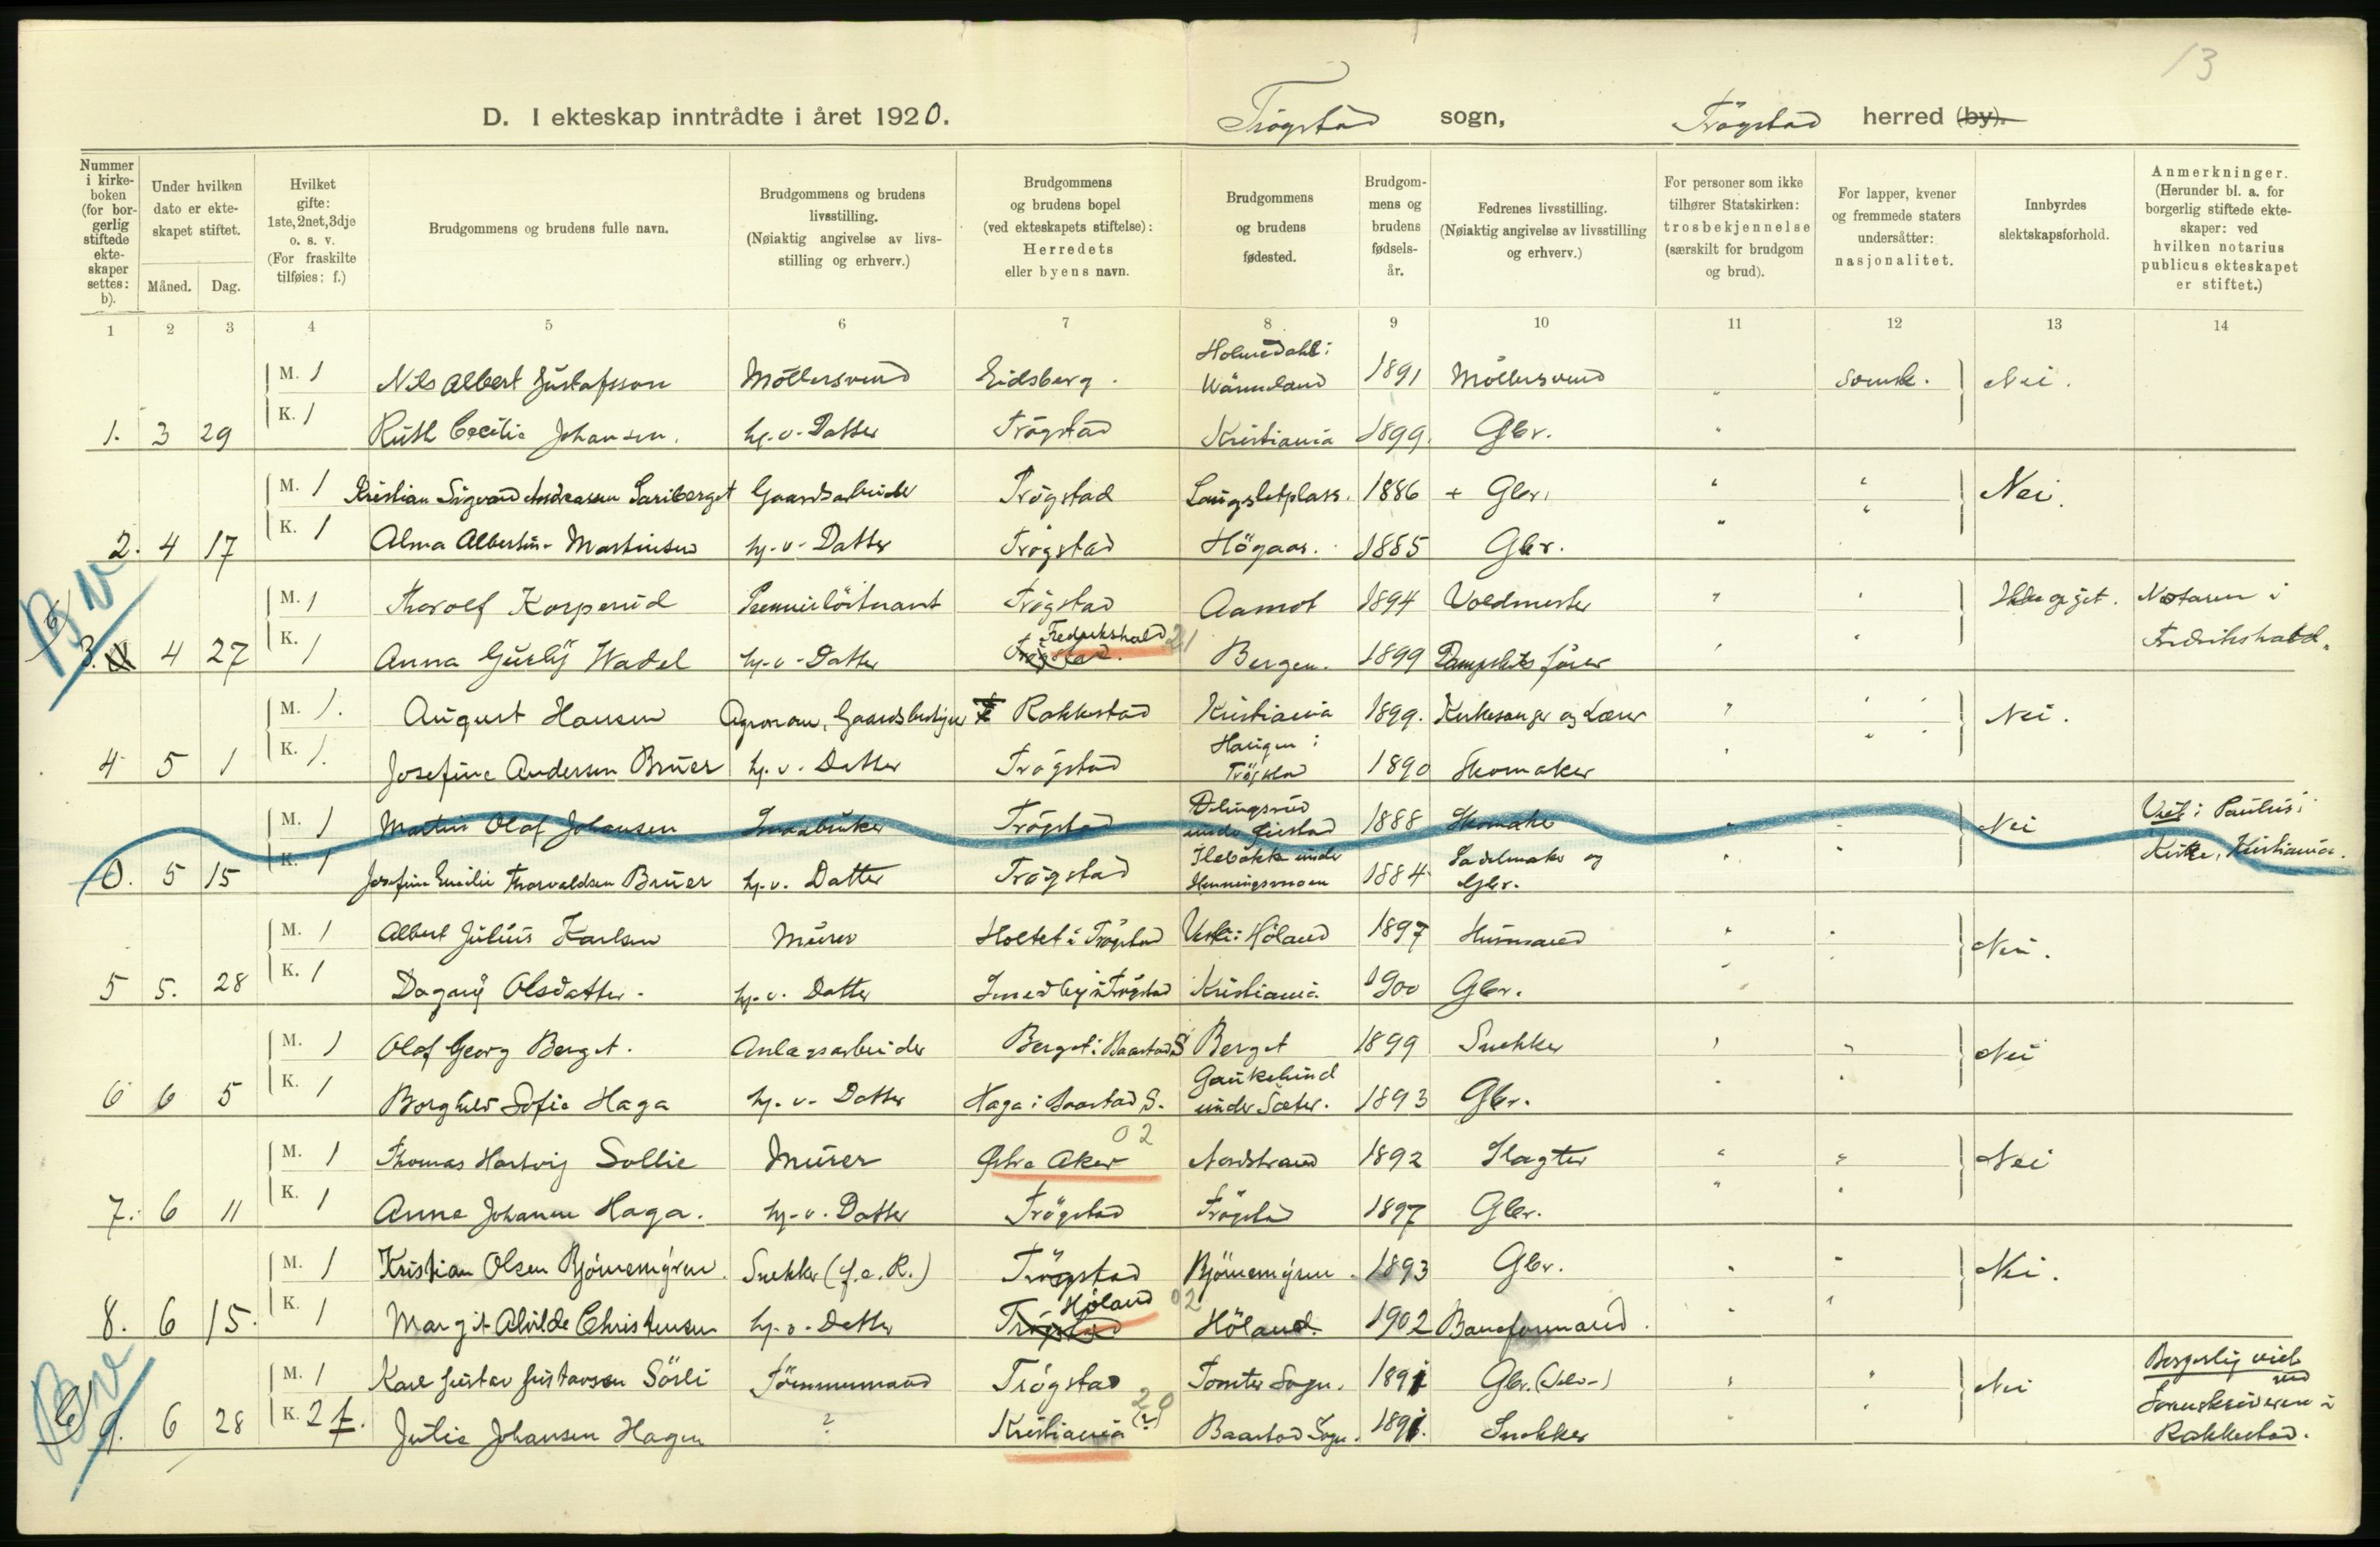 13
D. I ekteskap inntrådte i året 1920.
Trögstad sogn, Trögstad herred (by).
Nummer i kirkeboken (for borgerlig stiftede ekteskaper settes: b).
Under hvilken dato er ekteskapet stiftet.
Måned. Dag.
Hvilket gifte: 1ste, 2net, 3dje o. s. v. (For fraskilte tilføies: f.)
Brudgommens og brudens fulle navn.
Brudgommens og brudens livsstilling. (Nøiaktig angivelse av livsstilling og erhverv.)
Brudgommens og brudens bopel (ved ekteskapets stiftelse): Herredets eller byens navn.
Brudgommens og brudens fødested.
Brudgommens og brudens fødselsår.
Fedrenes livsstilling. (Nøiaktig angivelse av livsstilling og erhverv.)
For personer som ikke tilhører Statskirken: trosbekjennelse (særskilt for brudgom og brud).
For lapper, kvener og fremmede staters undersåtter: nasjonalitet.
Innbyrdes slektskapsforhold.
Anmerkninger. (Herunder bl. a. for borgerlig stiftede ekteskaper: ved hvilken notarius publicus ekteskapet er stiftet.)
1 2 3 4 5 6 7 8 9 10 11 12 13 14
M. 1 Nils Albert Gustafsson Möllersvend Eidsberg. Holmedahl i Wärmland 1891 Möllersvend " Svensk. Nei.
1. 3 29 K. 1 Ruth Cecilie Johansen. hj. v. Datter Trögstad Kristiania 1899. Gbr. "
M. 1 Kristian Sigvard Andreassen Sariberget Gaardsarbeider Trögstad Langsletplass. 1886 + Gbr. " " Nei.
2. 4 17 K. 1 Alma Albertine Martinsen hj. v. Datter Trögstad Högaas. 1885 Gbr. " "
M. 1 Thorolf Korperud Premierlöitnant Trögstad Aamot 1894 Voldmester " " Ikke opgit. Notaren i
B v
b) 3. 4 27 K. 1 Anna Gurly Wadel hj. v. Datter Trögstad. Fredrikshald 21 Bergen. 1899 Dampskibsfører " " Fredrikshald.
M. 1. August Hansen Agronom, Gaardsbestyrer Rakkestad Kristiania 1899. Kirkesanger og Lærer " " Nei.
4 5 1 K. 1. Josefine Andersen Bruer hj. v. Datter Trögstad Haugen i Trögstad 1890 Skomaker " "
M. 1 Martin Olaf Johansen Smaabruker Trögstad under 1888 Skomaker " " Nei Viet i Paulus
0. 5 15 K. 1 Josefine Emilie Thorvaldsen Bruer hj. v. Datter Trögstad Slebakke under Henningsmoen 1884 Sadelmaker og Gbr. " " Kirke, Kristiania.
M. 1 Albert Julius Karlsen Murer Holtet i Trögstad Veski i Höland 1897 Husmand " " Nei.
5 5. 28 K. 1 Dagny Olsdatter. hj. v. Datter Smedby i Trögstad Kristiania 1900 Gbr. "
M. 1 Olaf Georg Berget. Anlægsarbeider Berget i Baastad S Berget 1899 Snekker " " Nei
6 6 5 K. 1 Borghild Sofie Haga hj. v. Datter Haga i Baastad S. Gaukehind under Sæter. 1893 Gbr. " "
02
M. 1 Thomas Hartvig Sollie Murer Östre Aker Nordstrand 1892 Slagter " " Nei
7. 6 11 K. 1 Anne Johanne Haga. hj. v. Datter Trögstad Trögstad 1897 Gbr. " "
M. 1 Kristian Olsen Björnemyren. Snekker (f. e. R.) Trögstad Björnemyren. 1893 Gbr. " " Nei.
8. 6 15. K. 1 Margit Alvilde Christensen hj. v. Datter Trögstad Höland 02 Höland. 1902 Baneformand. " "
M. 1 Karl Gustav Gustavsen Sörli Tömmermand Trögstad Tomter Sogn. 1891 Gbr. (Selv-) " " Nei Borgerlig viet ved
B v
b) 9. 6 28 K. 2 f. Julie Johansen Hagen ? Kristiania (?) 20 Baastad Sogn. 1891. Snekker " " Sorenskriveren i Rakkestad.